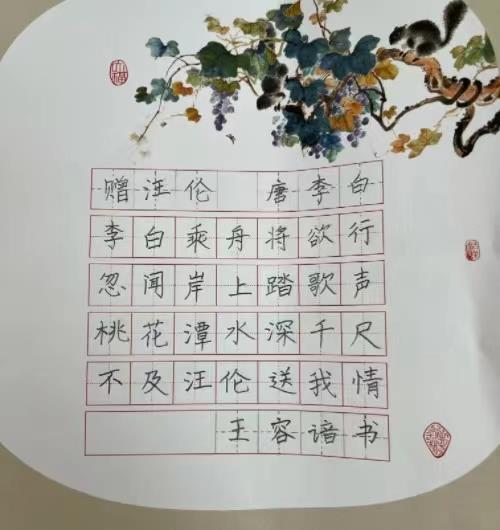 赠汪伦 唐李白
李白乘舟将欲行
忽闻岸上踏歌声
桃花潭水深千尺
不及汪伦送我情
王容谙书